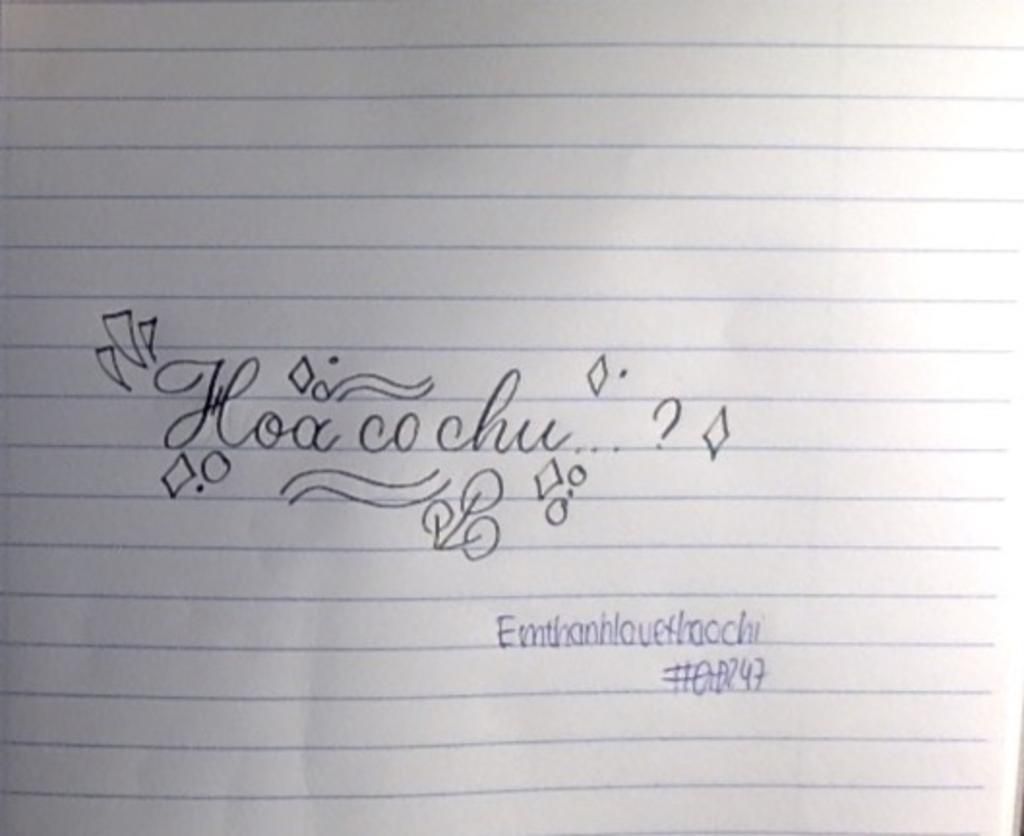 Hoa co chu... ?
Emthanhlovethaochi